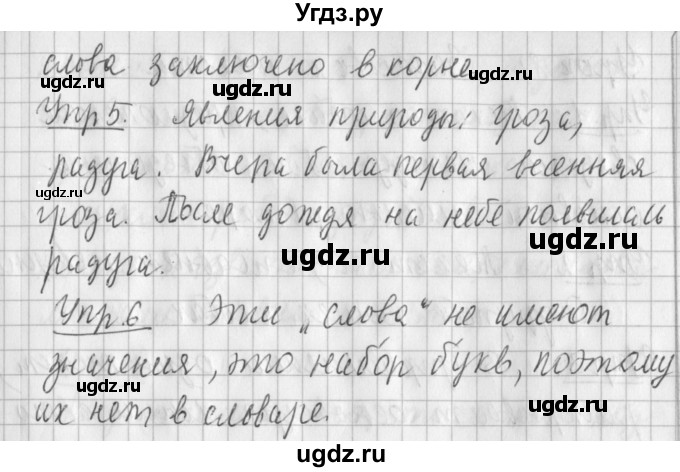 Угдз.ру
слова заключено в корне
Упр5. Явления природы: гроза,
радуга. Вчера была первая весенняя
гроза. После дождя на небе появилась
радуга.
Упр.6 Эти „слова“ не имеют
значения, это набор букв, поэтому
их нет в словаре.
ugdz.ru
ugdz.ru
ugdz.ru
ugdz.ru
ugdz.ru
ugdz.ru
ugdz.ru
ugdz.ru
ugdz.ru
ugdz.ru
ugdz.ru
ugdz.ru